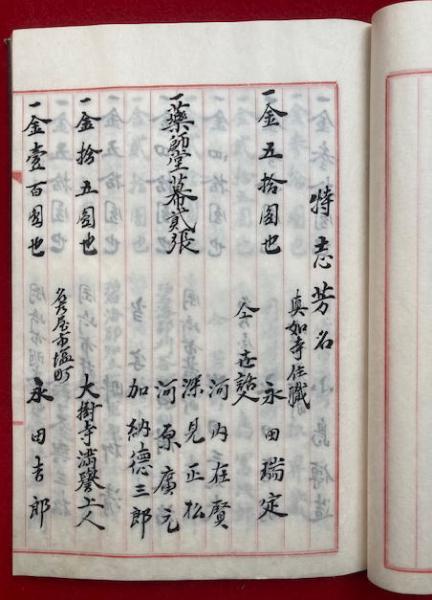 特志芳名
真如寺住職
一金五拾圓也 永田瑞定
仝世話人
河内在賢
深見正松
一藥師堂幕貳張 河原廣元
加納德三郎
一金拾五圓也 大樹寺満譽上人
一金壹百圓也 永田吉郎